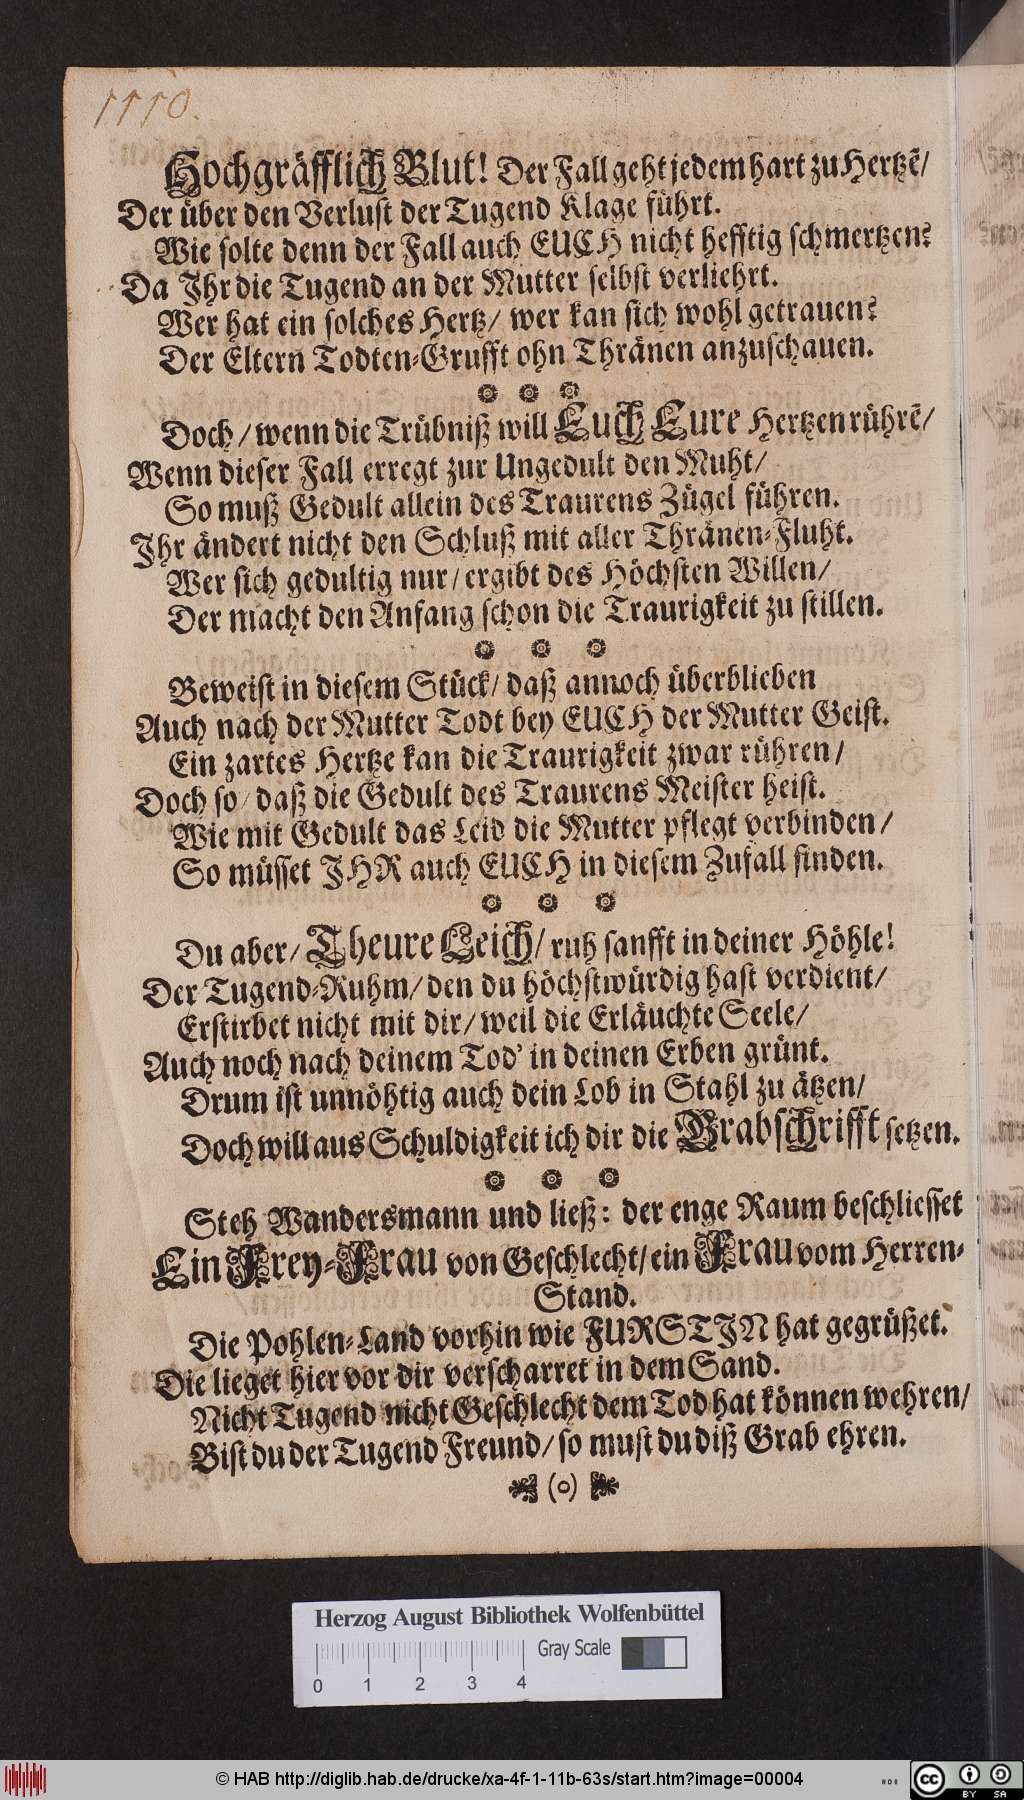 1110.
Hochgräfflich Blut! Der Fall geht jedem hart zu Hertzē/
Der über den Verlust der Tugend Klage führt.
Wie solte denn der Fall auch EUCH nicht hefftig schmertzen?
Da Ihr die Tugend an der Mutter selbst verliehrt.
Wer hat ein solches Hertz/ wer kan sich wohl getrauen?
Der Eltern Todten-Grufft ohn Thränen anzuschauen.
Doch/ wenn die Trübniß will Euch Eure Hertzen rührē/
Wenn dieser Fall erregt zur Ungedult den Muht/
So muß Gedult allein des Traurens Zügel führen.
Ihr ändert nicht den Schluß mit aller Thränen-Fluht.
Wer sich gedultig nur/ ergibt des Höchsten Willen/
Der macht den Anfang schon die Traurigkeit zu stillen.
Beweist in diesem Stück/ daß annoch überblieben
Auch nach der Mutter Todt bey EUCH der Mutter Geist.
Ein zartes Hertze kan die Traurigkeit zwar rühren/
Doch so/ daß die Gedult des Traurens Meister heist.
Wie mit Gedult das Leid die Mutter pflegt verbinden/
So müsset IHR auch EUCH in diesem Zufall finden.
Du aber/ Theure Leich/ ruh sanfft in deiner Höhle!
Der Tugend-Ruhm/ den du höchstwürdig hast verdient/
Erstirbet nicht mit dir/ weil die Erläuchte Seele/
Auch noch nach deinem Tod' in deinen Erben grünt.
Drum ist unnöhtig auch dein Lob in Stahl zu ätzen/
Doch will aus Schuldigkeit ich dir die Grabschrifft setzen.
Steh Wandersmann und ließ: der enge Raum beschliesset
Ein Frey-Frau von Geschlecht/ ein Frau vom Herren-
Stand.
Die Pohlen-Land vorhin wie FURSTIN hat gegrüßet.
Die lieget hier vor dir verscharret in dem Sand.
Nicht Tugend nicht Geschlecht dem Tod hat können wehren/
Bist du der Tugend Freund/ so must du diß Grab ehren.
(o)
Herzog August Bibliothek Wolfenbüttel
Gray Scale
0 1 2 3 4
© HAB http://diglib.hab.de/drucke/xa-4f-1-11b-63s/start.htm?image=00004
cc BY SA